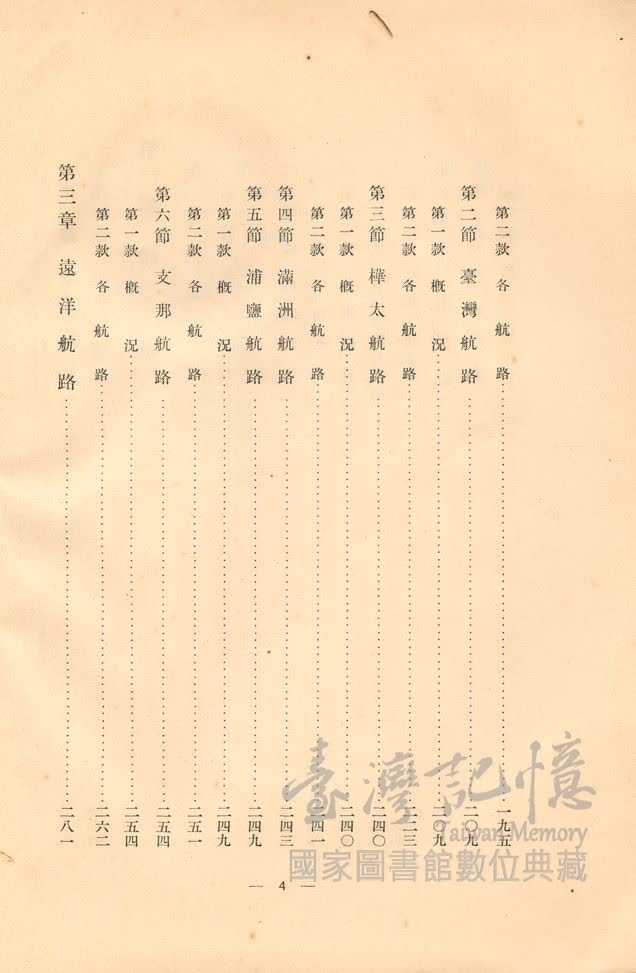 第二款 各航路……一九五
第二節 臺灣航路……二〇九
第一款 概況……二〇九
第二款 各航路……二二三
第三節 樺太航路……二四〇
第一款 概況……二四〇
第二款 各航路……二四一
第四節 滿洲航路……二四三
第五節 浦鹽航路……二四九
第一款 概況……二四九
第二款 各航路……二五一
第六節 支那航路……二五四
第一款 概況……二五四
第二款 各航路……二六二
第三章 遠洋航路……二八一
— 4 —
臺灣記憶
Taiwan Memory
國家圖書館數位典藏